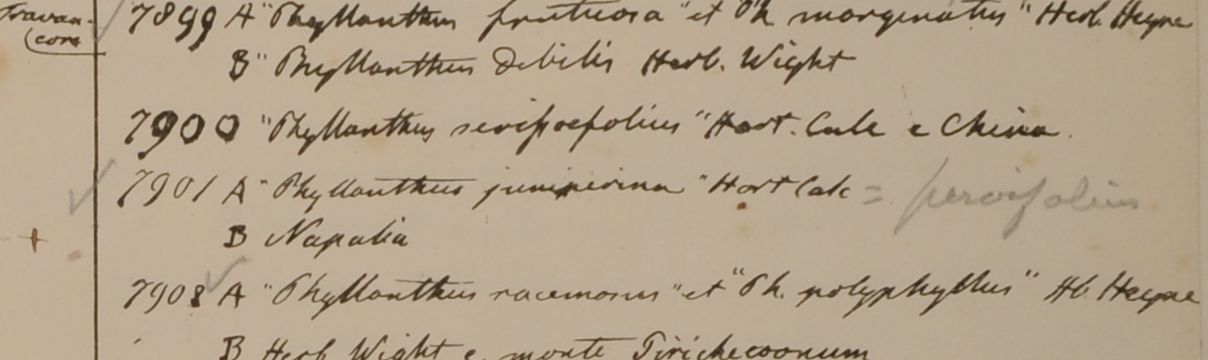 Travan-
core
7899 A "Phyllanthus fruticosa" et Ph. marginatus" Herb. Heyne
B "Phyllanthus debilis Herb. Wight
7900 "Phyllanthus Hort. Calc e China.
7901 A "Phyllanthus juniperina" Hort Calc = parvifolius
B Napalia
7908 A "Phyllanthus racemosus" et "Ph. polyphyllus" Hb. Heyne
B Herb. Wight e monte